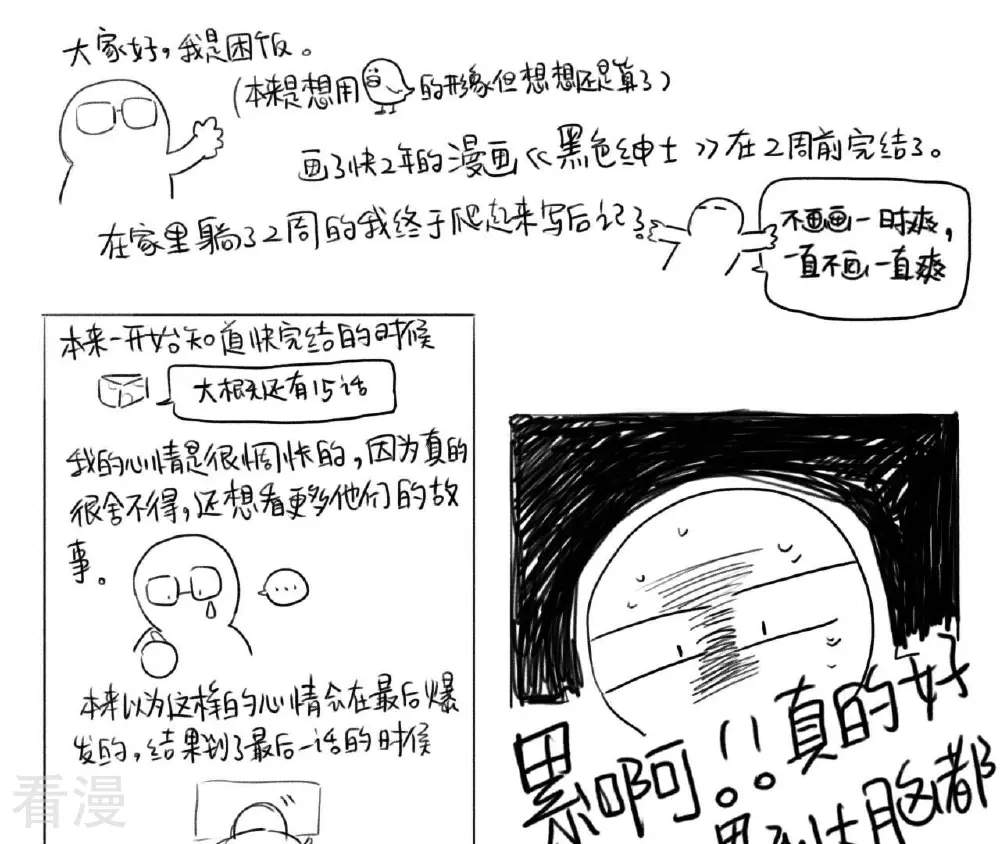 大家好，我是困饭。
(本来是想用的形象但想想还是算了)
画了快2年的漫画《黑色绅士》在2周前完结了。
在家里躺了2周的我终于爬起来写后记了
不画画一时爽，
一直不画一直爽
本来一开始知道快完结的时候
大概还有15话
我的心情是很惆怅的，因为真的
很舍不得，还想看更多他们的故
事。
...
本来以为这样的心情会在最后爆
发的，结果到了最后一话的时候
真的好
累啊!!
大脑都
看漫